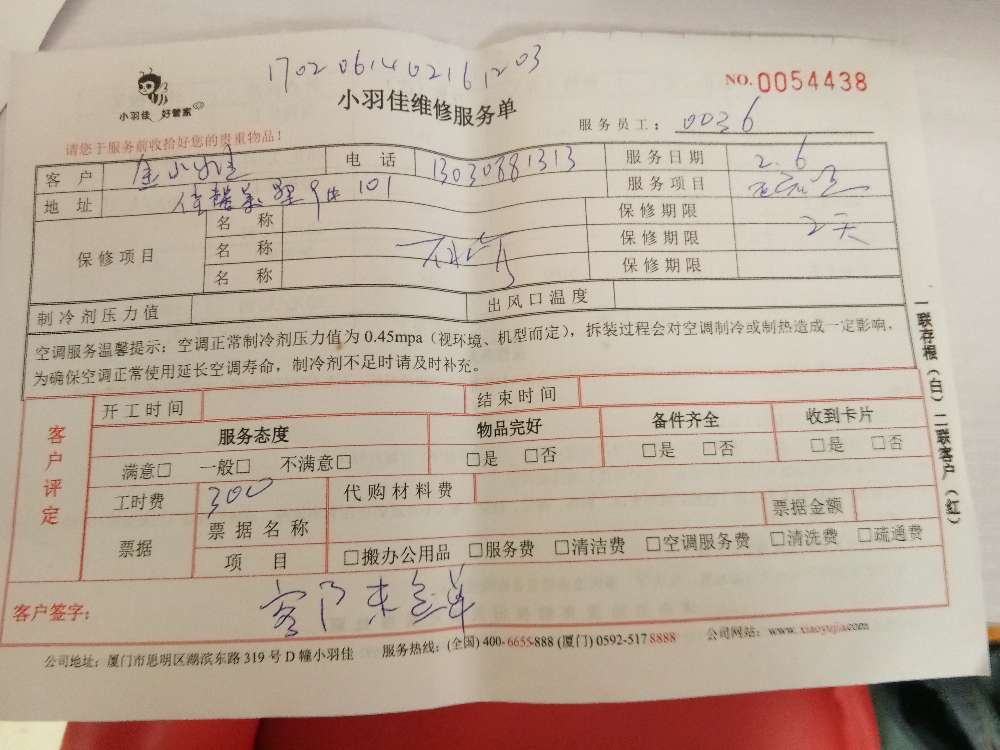 1702061402161203
NO.0054438
小羽佳 好管家
小羽佳维修服务单
服务员工: 0036
请您于服务前收拾好您的贵重物品!
客户 电话 13030881313 服务日期 2.6
地址 佳馨 9# 101 服务项目
保修项目 名称 保修期限
名称 保修期限 2天
名称 保修期限
制冷剂压力值 出风口温度
空调服务温馨提示:空调正常制冷剂压力值为0.45mpa(视环境、机型而定),拆装过程会对空调制冷或制热造成一定影响,
为确保空调正常使用延长空调寿命,制冷剂不足时请及时补充。
一联存根(白)二联客户(红)
客户评定
开工时间 结束时间
服务态度 物品完好 备件齐全 收到卡片
满意□ 一般□ 不满意□ □是 □否 □是 □否 □是 □否
工时费 300 代购材料费
票据 票据名称 票据金额
项目 □搬办公用品 □服务费 □清洁费 □空调服务费 □清洗费 □疏通费
客户签字:
公司地址:厦门市思明区湖滨东路319号D幢小羽佳 服务热线:(全国)400-6655-888(厦门)0592-5178888 公司网站:www.xiaoyujia.com